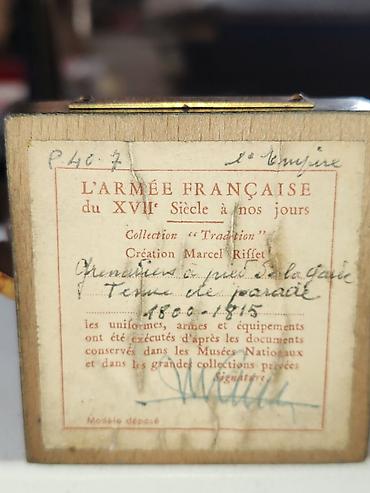 P. 40. 7 1er Empire
L'ARMÉE FRANÇAISE
du XVIIe Siècle à nos jours
Collection "Tradition"
Création Marcel Riffet
Grenadiers à pied de la Garde
Tenue de parade
1800-1815
les uniformes, armes et équipements
ont été exécutés d'après les documents
conservés dans les Musées Nationaux
et dans les grandes collections privées
Signature
Modèle déposé